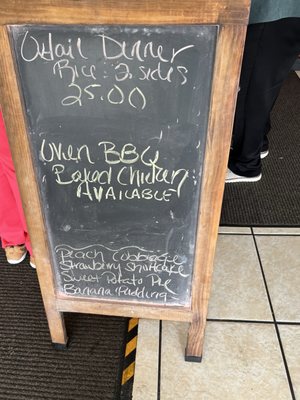 Oxtail Dinner
Rice 2 sides
25.00
Oven BBQ
Baked Chicken
AVAILABLE
Peach Cobbler
Strawberry Shortcake
Sweet Potato Pie
Banana Pudding